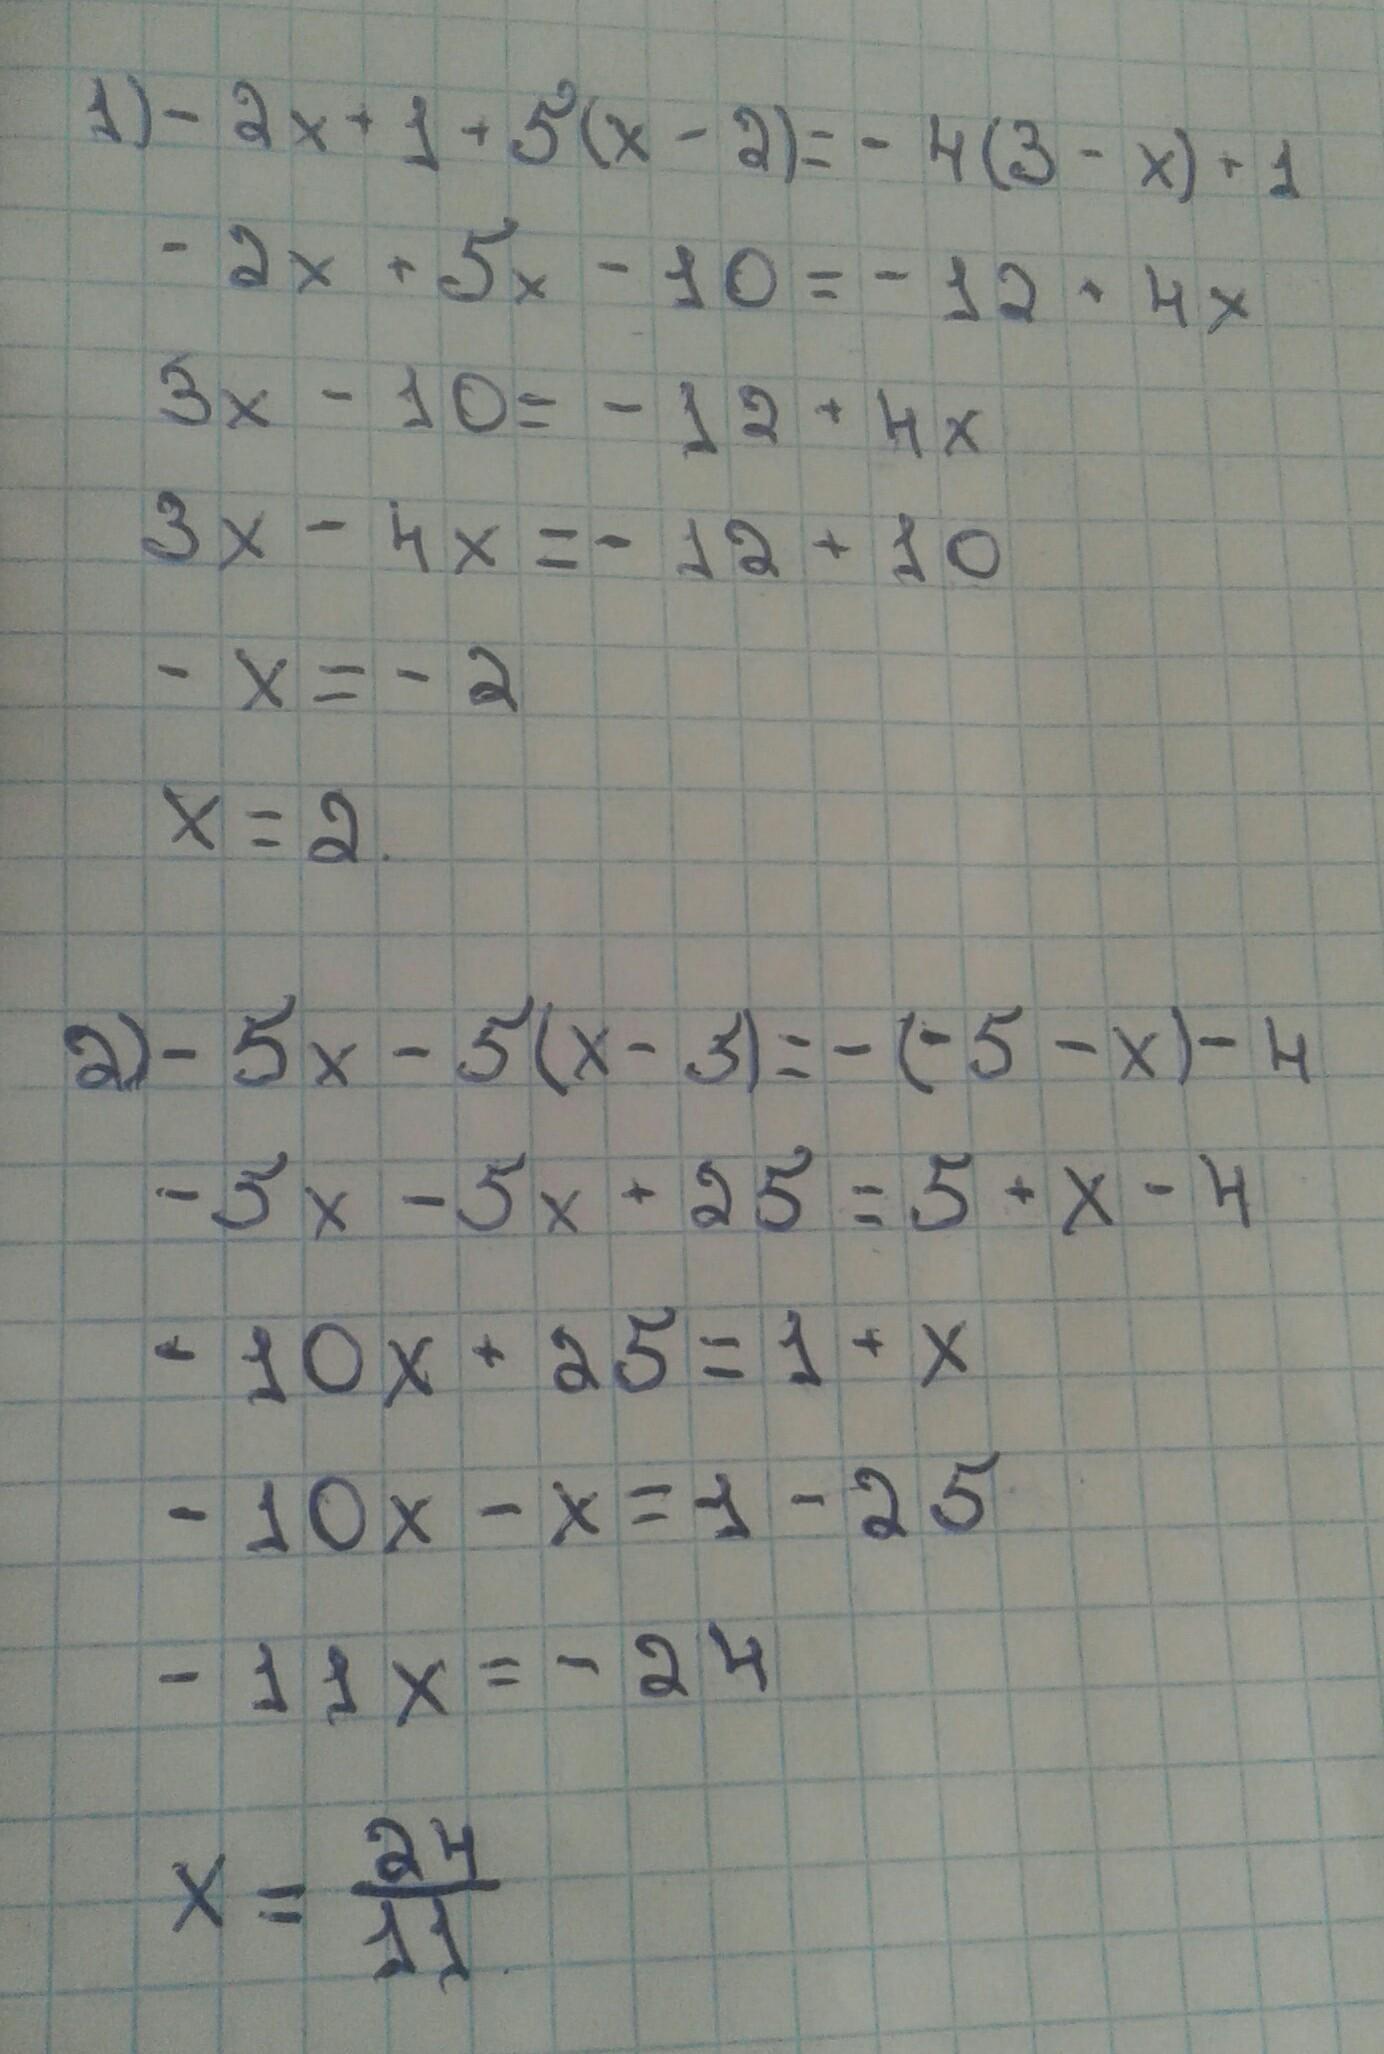 1) - 2x + 1 + 5(x - 2) = - 4(3 - x) + 1
- 2x + 5x - 10 = - 12 + 4x
3x - 10 = - 12 + 4x
3x - 4x = - 12 + 10
- x = - 2
x = 2.
2) - 5x - 5(x - 3) = - (- 5 - x) - 4
- 5x - 5x + 25 = 5 + x - 4
- 10x + 25 = 1 + x
- 10x - x = 1 - 25
- 11x = - 24
x = 24/11.